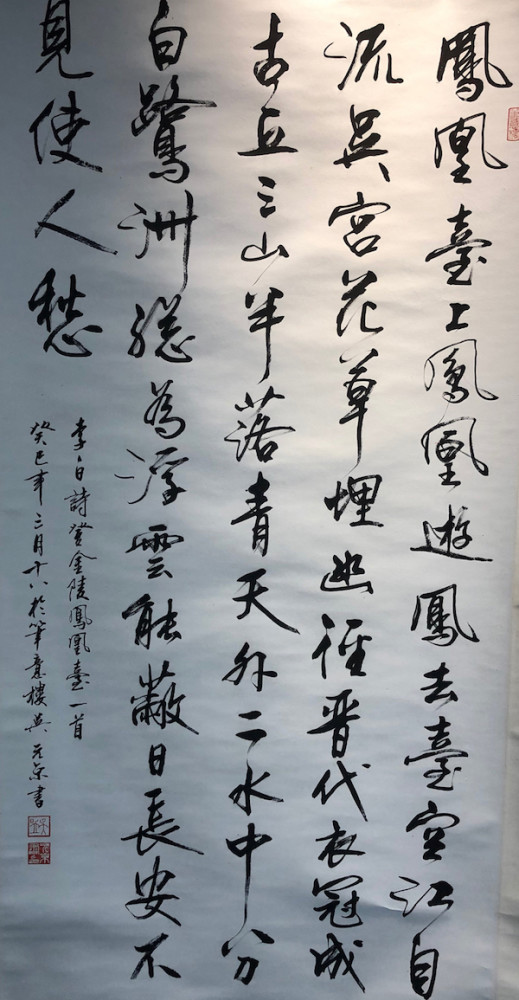 鳳凰臺上鳳凰遊鳳去臺空江自
流吳宮花草埋幽徑晉代衣冠成
古丘三山半落青天外二水中分
白鷺洲總為浮雲能蔽日長安不
見使人愁
李白詩登金陵鳳凰臺一首
癸巳年三月十八於筆意樓吳元京書